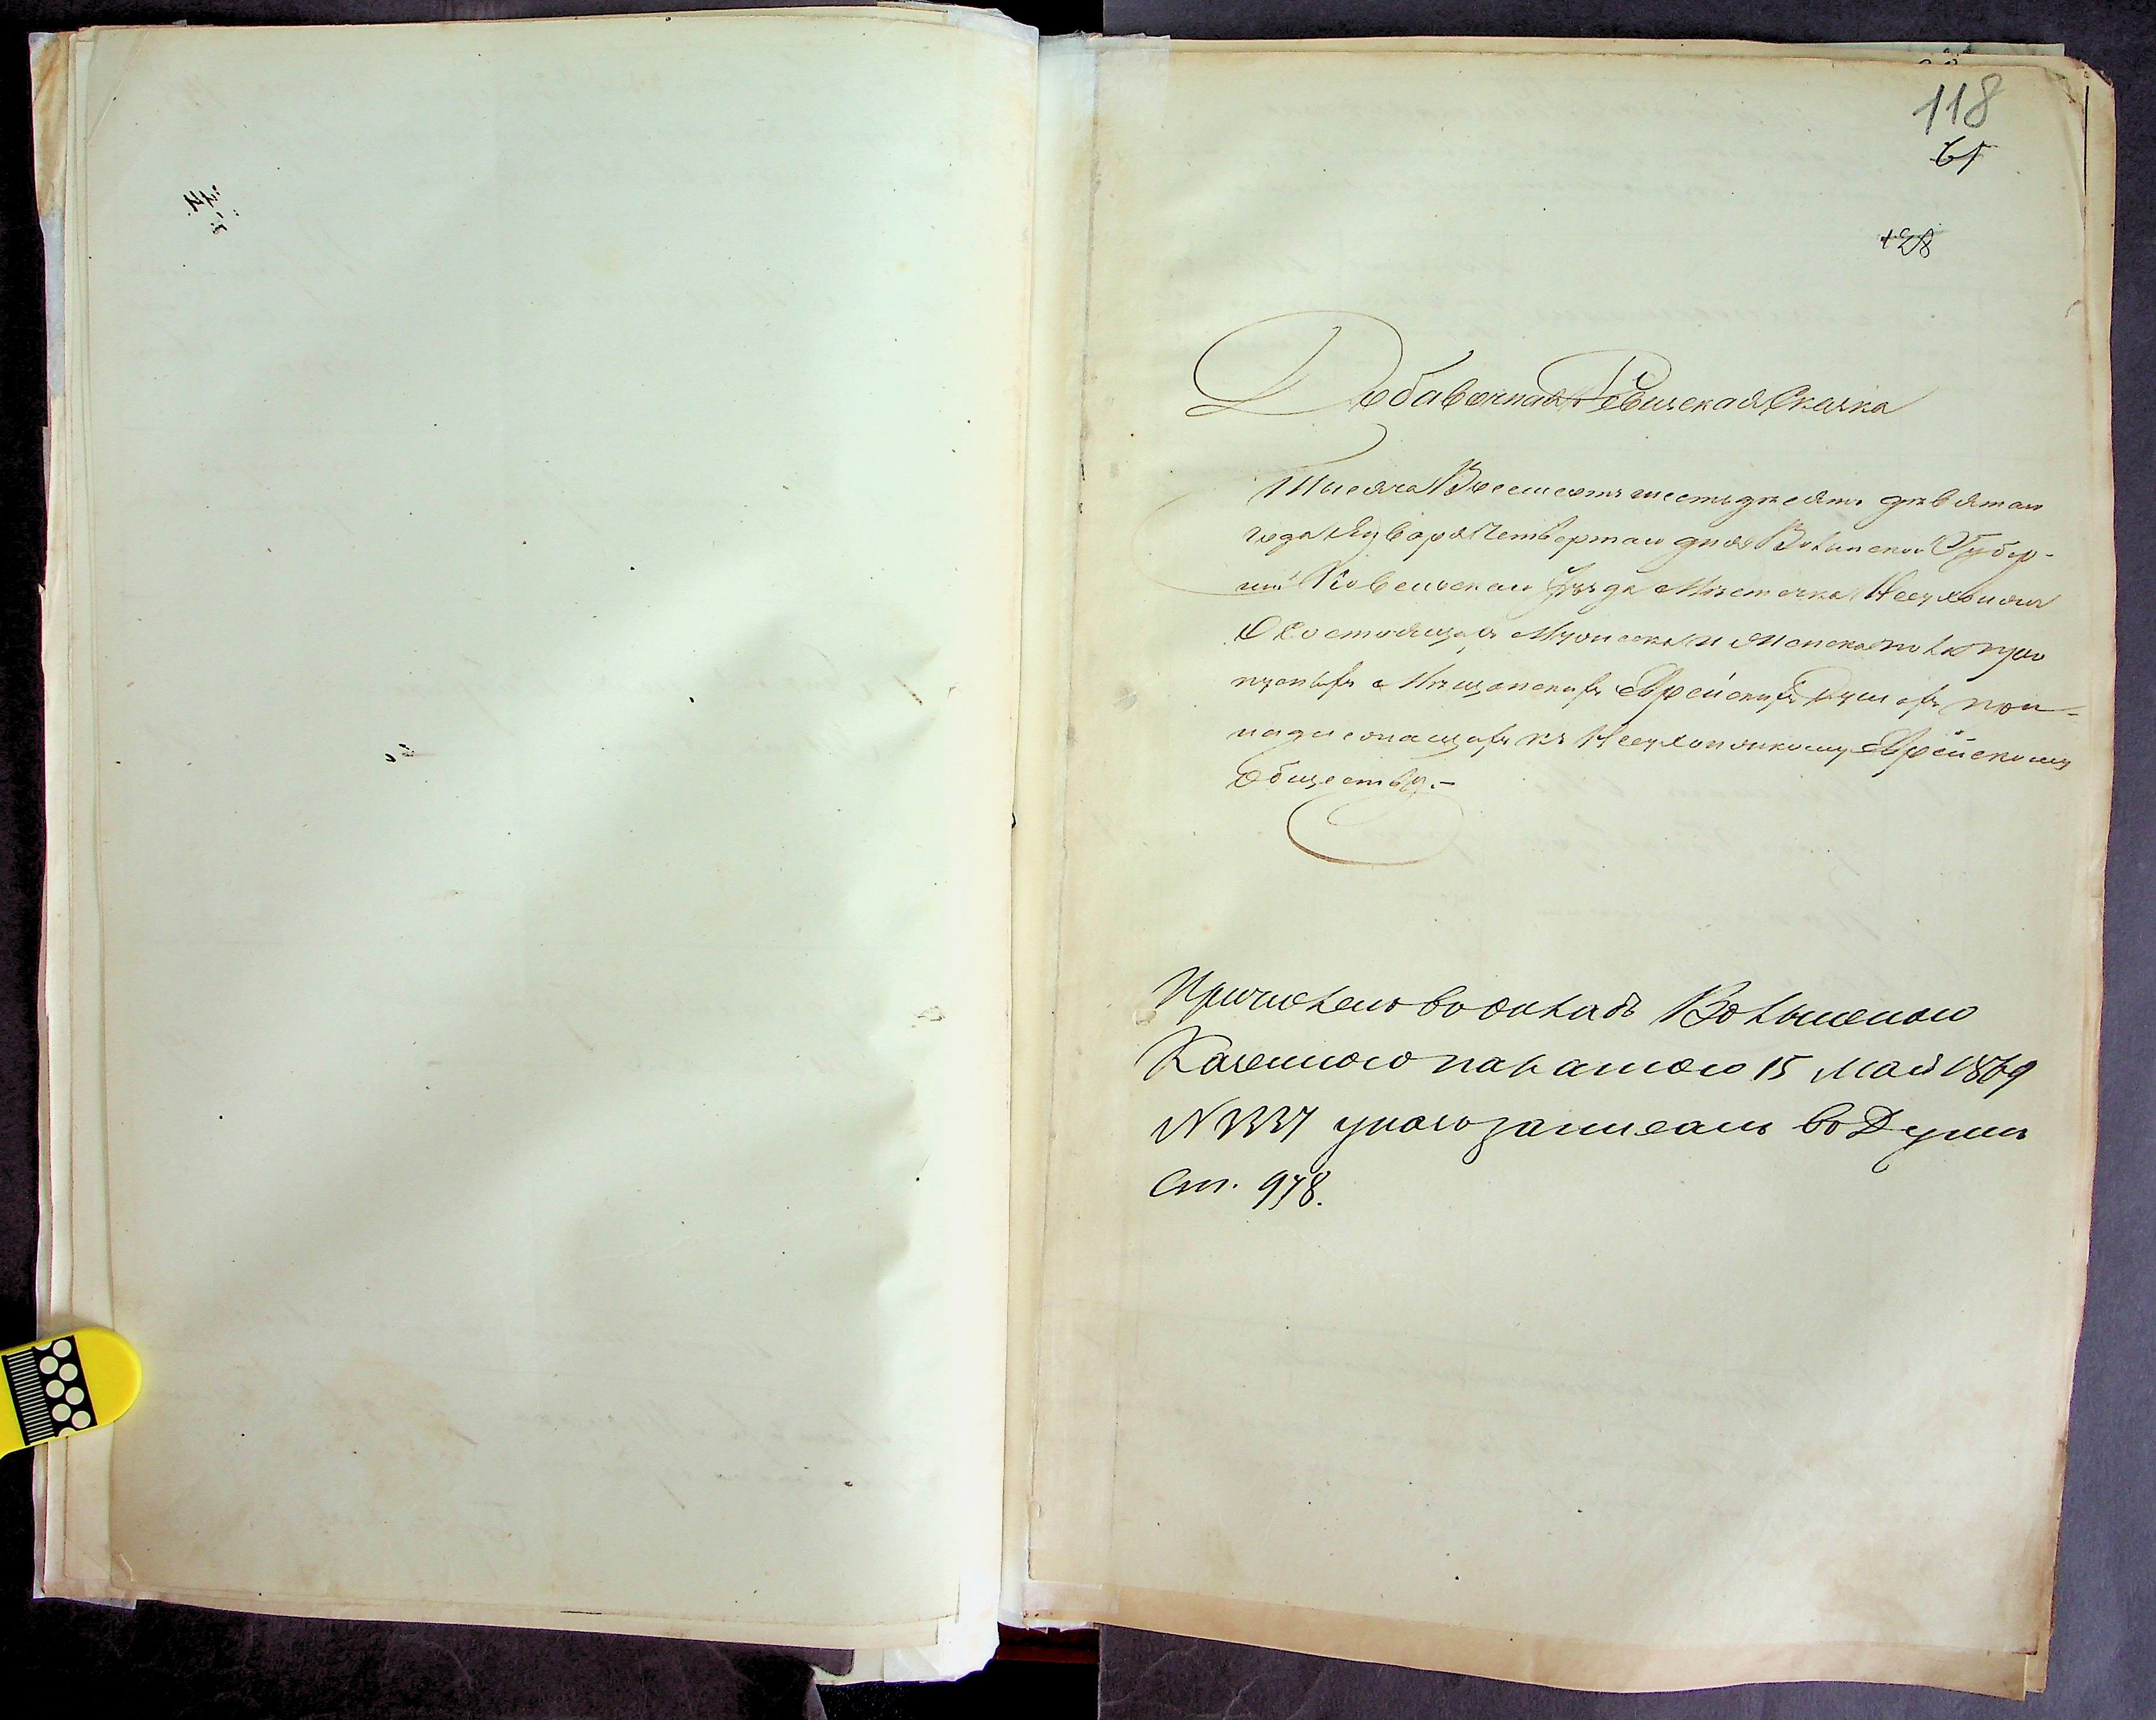 118
61
128
Добавочная Ревизская Сказка
Тысяча Восемсотъ шестьдесятъ девятаго
года Января Четвертаго дня Волынской Губер-
нии Ковельскаго уѣзда Мѣстечка Несухоижъ
О состоящихъ Мужеска и Женска пола про
пущенныхъ Мѣщанскихъ Еврейскихъ душахъ при-
надлежащихъ къ Несухоижскому Еврейскому
Обществу.-
Причислено во окладъ Волынскою
Казенною палатою 15 Мая 1869
N 3337 указо записано во Думѣ
Ст. 978.